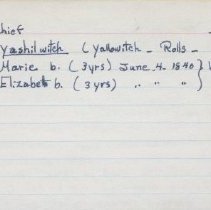 hief
Yashilwitch (Yallowitch - Rolls -
Marie b. (3yrs) June 4. 1840 }
Elizabet b. (3 yrs) " " " }